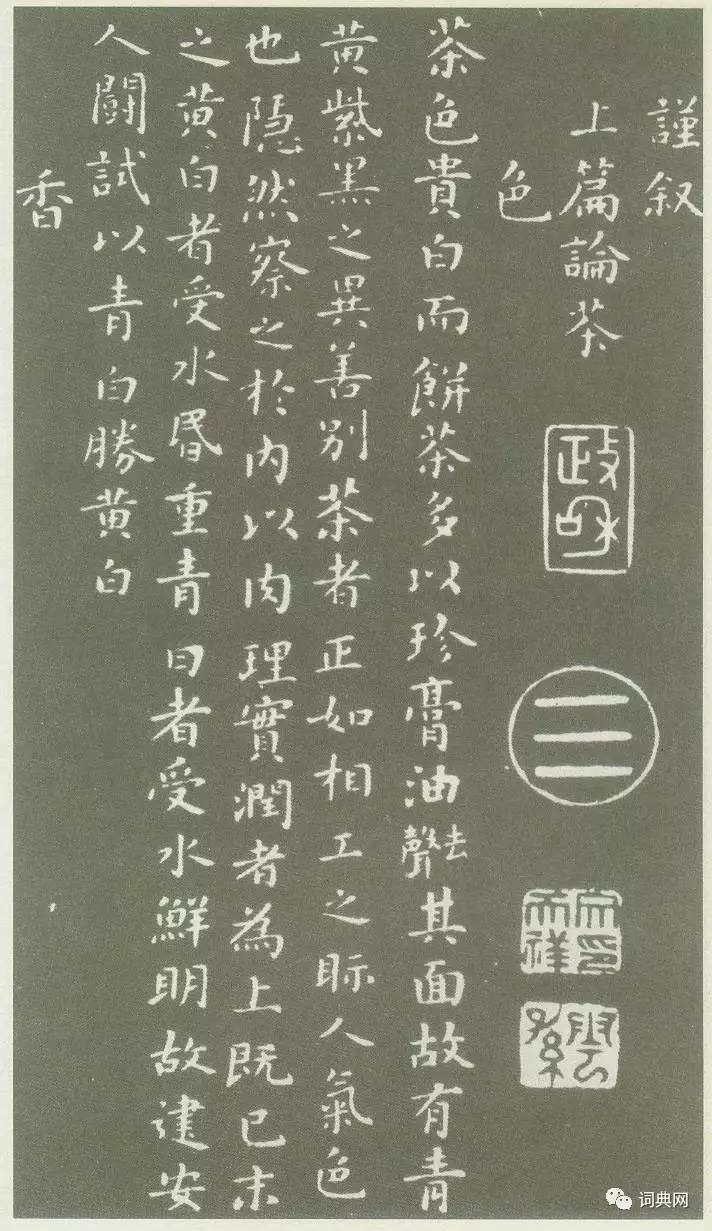 謹叙
上篇論茶
政和
色
茶色貴白而餅茶多以珍膏油去聲其面故有青
黄紫黑之異善别茶者正如相工之眎人氣色
也隱然察之於内以肉理實潤者為上既已末
之黄白者受水昬重青白者受水鮮明故建安
人鬪試以青白勝黄白
香
词典网